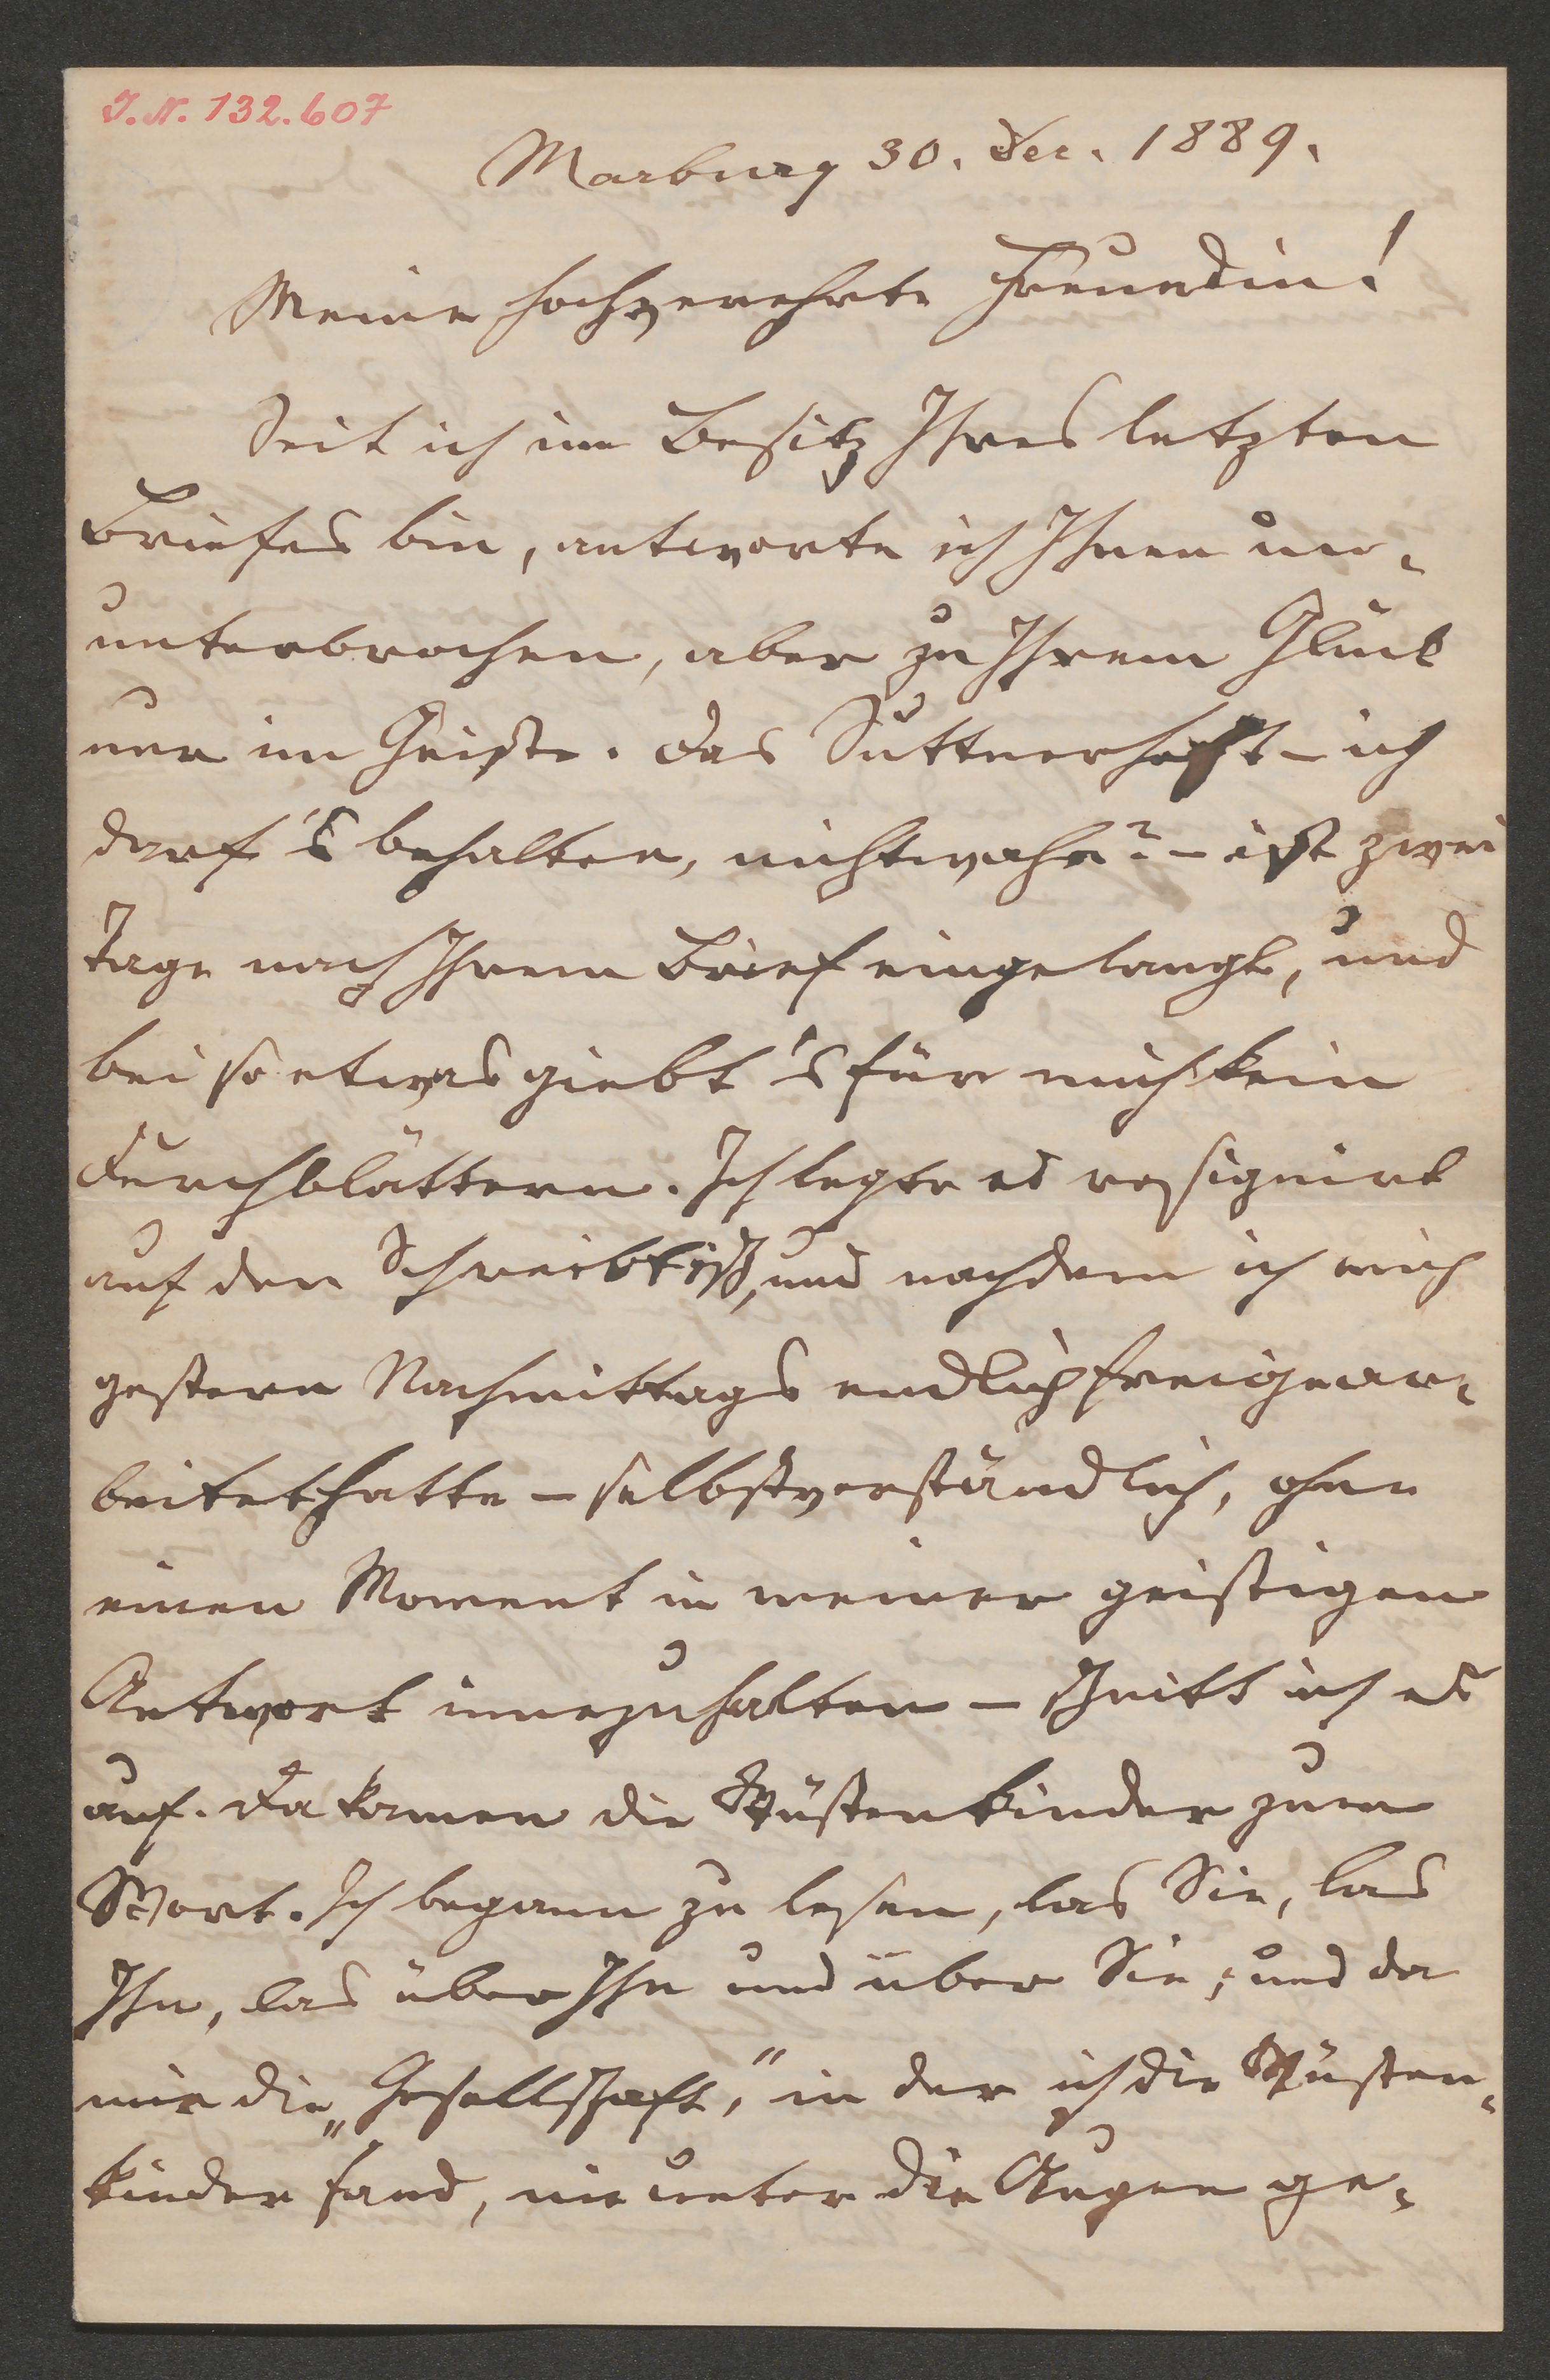 I. N. 132.607
Marburg 30. Dec. 1889.
Meine hochverehrte Freundin!
Seit ich im Besitz Ihres letzten
Briefes bin, antworte ich Ihnen un-
unterbrochen, aber zu Ihrem Glück
nur im Geiste. Das Suttnerheft – ich
darf's behalten, nichtwahr? – ist zwei
Tage nach Ihrem Brief eingelangt, und
bei so etwas giebt's für mich kein
Durchblättern. Ich legte es resignirt
auf den Schreibtisch, und nachdem ich mich
gestern Nachmittags endlich freigear-
beitet hatte – selbstverständlich, ohne
einen Moment in meiner geistigen
Antwort innezuhalten – schnitt ich es
auf. Da kamen die Wüstenkinder zum
Wort. Ich begann zu lesen, las Sie, las
Ihn, las über Ihn und über Sie; und da
mir die „Gesellschaft," in der ich die Wüsten-
kinder fand, nie unter die Augen ge-